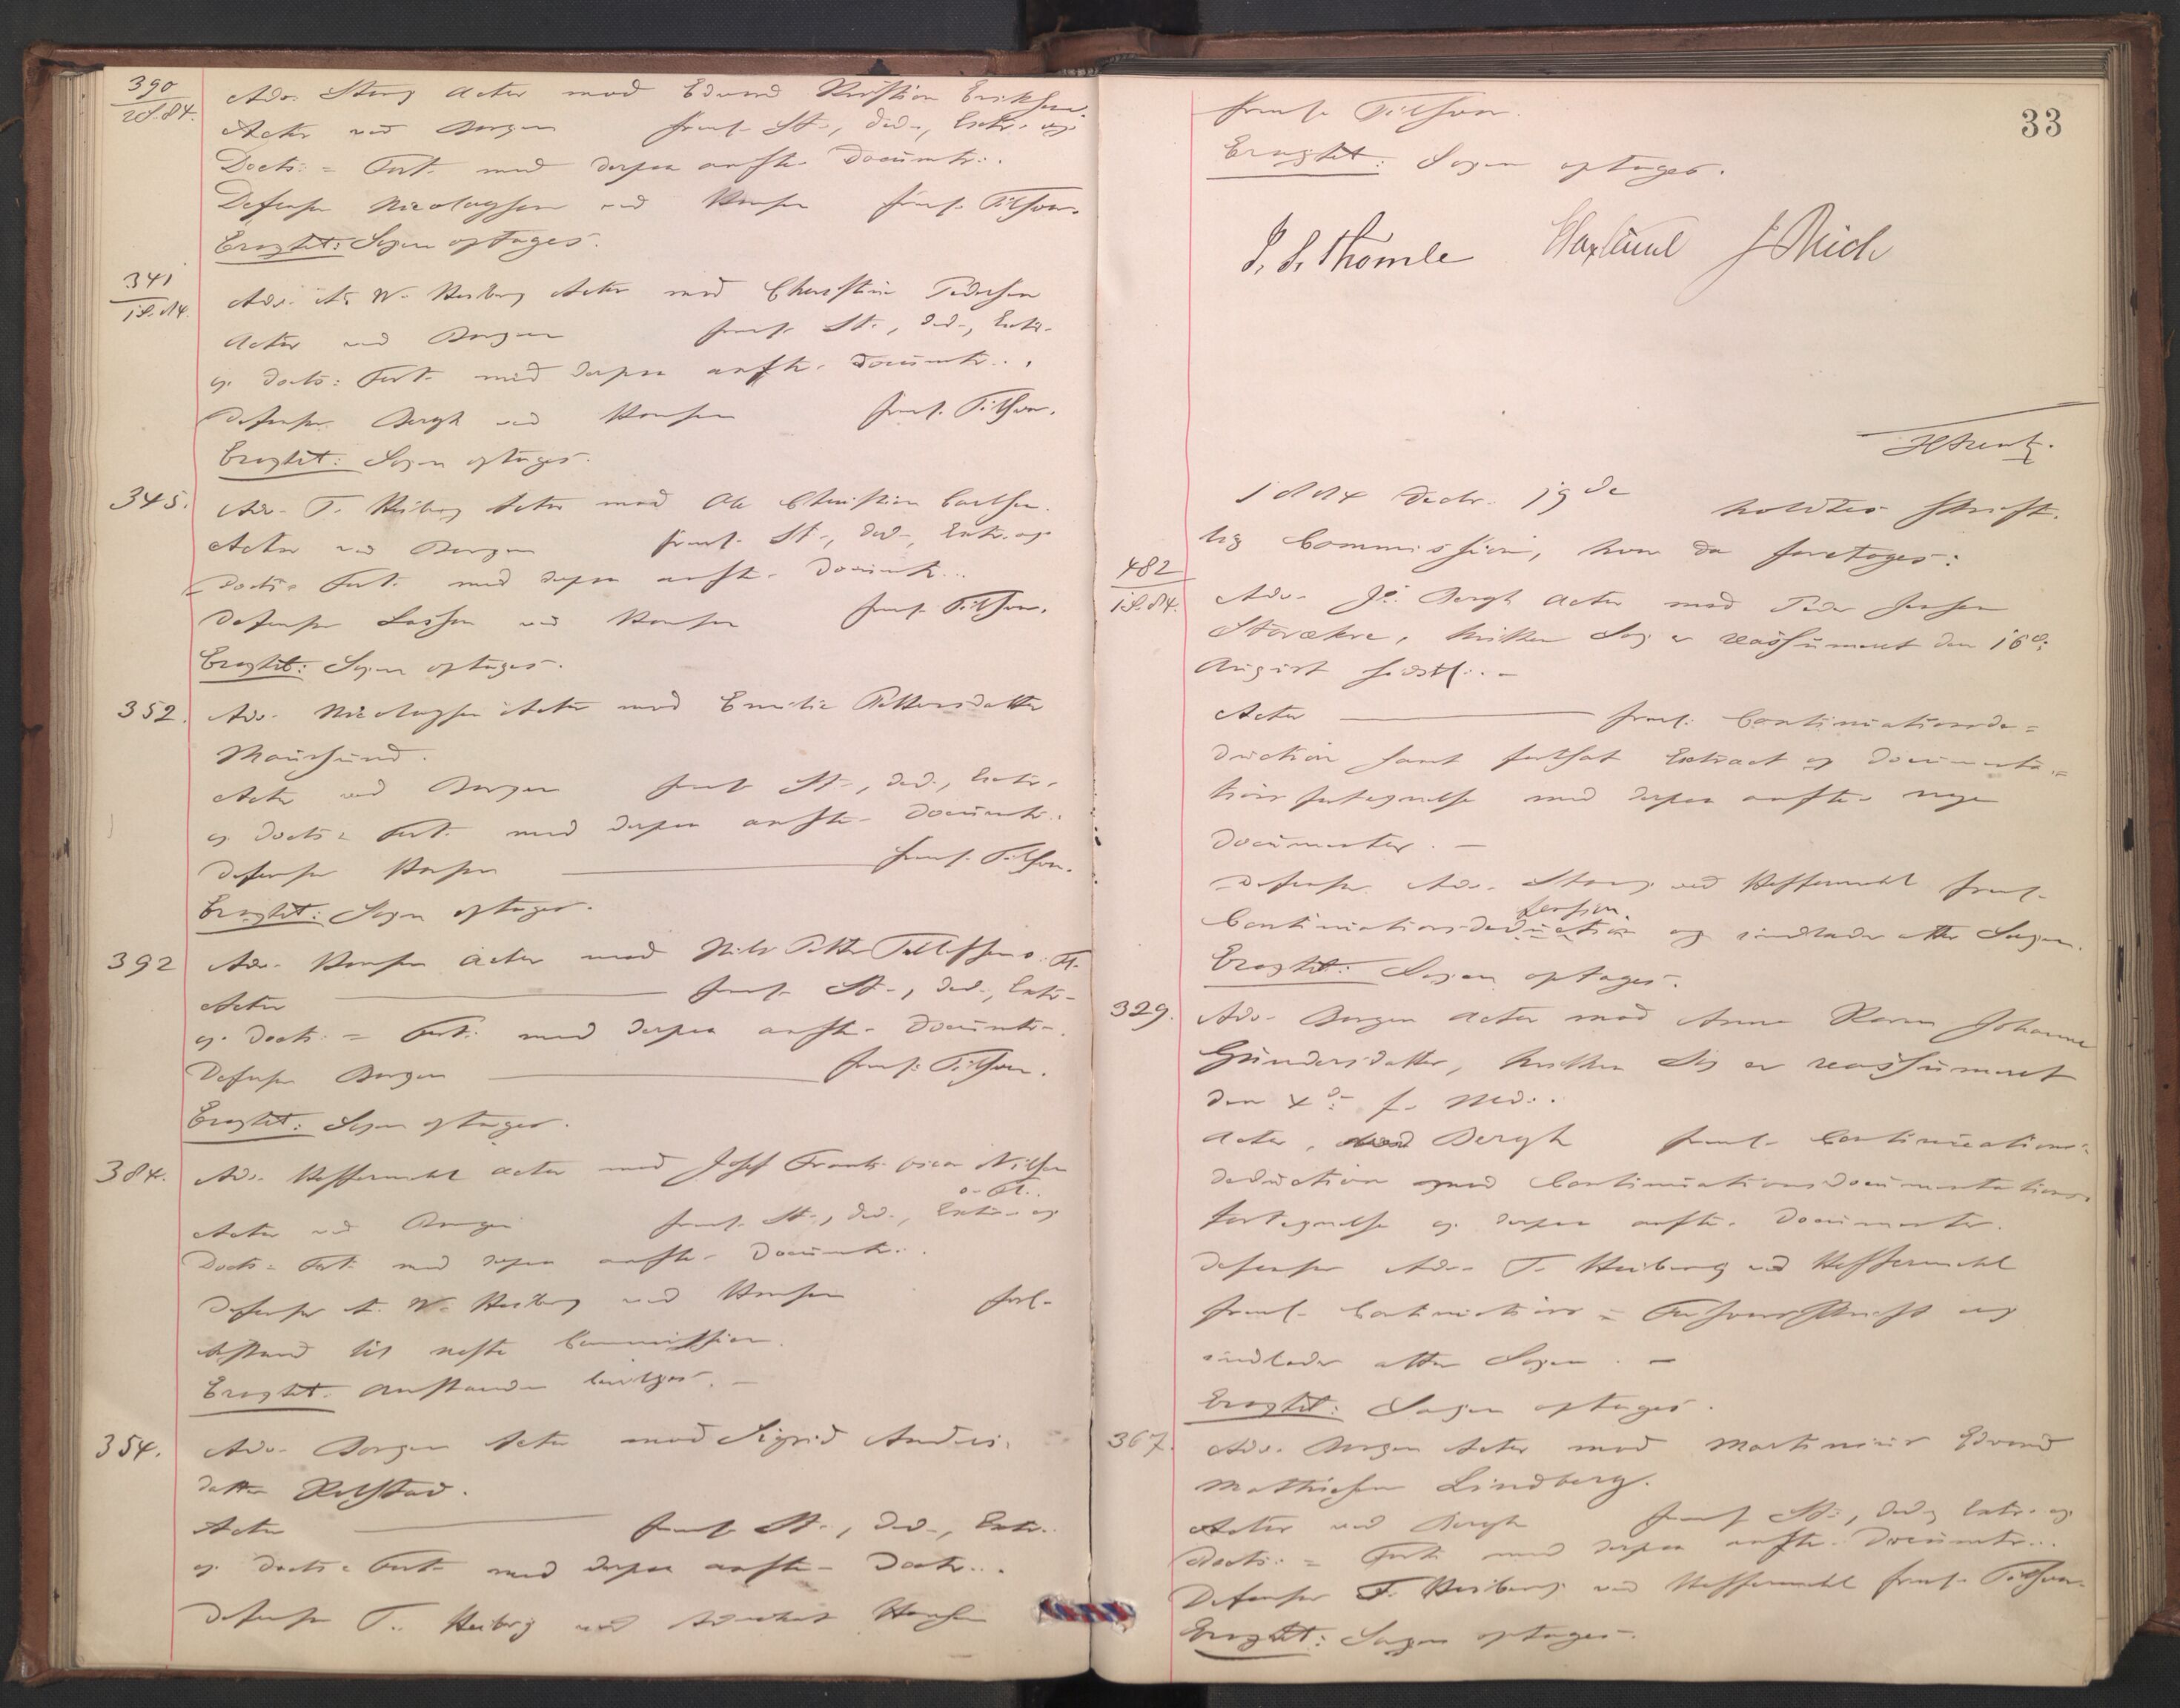 390
2S. 84.
Adv. Stang Actor mod Edvard Kristian Eriksen.
Actor ved Borgen freml. St., ded., Extr. og
Docts: = Fort. med derpaa anførte Documtr..
Defensor Nicolaysen ved Hansen freml. Tilsvar.
Eragtet: Sagen optages.
341
1S. 84.
Adv. A. W. Heiberg Actor mod Christian Pedersen
Actor ved Borgen freml. St., ded., Extr.
og docts: Fort. med derpaa anfte. Documtr..
Defensor Bergh ved Hansen freml. Tilsvar.
Eragtet: Sagen optages.
345.
Adv. T. Heiberg Actor mod Ole Christian Carlsen.
Actor ved Borgen freml. St., ded., Extr. og
docts = Fort. med derpaa anfte. Documtr...
Defensor Lassen ved Hansen freml. Tilsvar.
Eragtet: Sagen optages.
352.
Adv. Nicolaysen Actor mod Emilie Pettersdatter
Maursund.
Actor ved Borgen freml. St., ded., Extr.
og docts = Fort. med derpaa anfte. Documtr..
Defensor Hansen freml. Tilsvar.
Eragtet: Sagen optages.
392
Adv. Hansen Actor mod Nils Petter Tollefsen o. Fl.
Actor freml. St., ded., Extr.
og docts: = Fort. med derpaa anfte. Documtr..
Defensor Borgen freml. Tilsvar.
Eragtet: Sagen optages.
384.
Adv. Heffermehl Actor mod Josef Frantz Oscar Nilsen
o. Fl..
Actor ved Borgen freml. St., ded., Extr. og
Docts = Fort. med derpaa anfte. Documtr..
Defensor A. W. Heiberg ved Hansen forl.
Anstand til neste Commission.
Eragtet: Anstanden bevilges. —
354.
Adv. Borgen Actor mod Sigrid Anders-
datter Rolstad.
Actor freml. St., ded., Extr.
og docts = Fort. med derpaa anfte. Doctr...
Defensor T. Heiberg ved Advokat Hansen
33
freml. Tilsvar.
Eragtet: Sagen optages.
J. S. Thomle J Mich
1884 Decbr. 19de holdtes skrift-
lig Commission, hvor da foretoges:
482
1S. 84.
Adv. Jo. Bergh Actor mod Peder Jensen
Storækre, hvilken Sag er reassumeret den 16d:
August sidstl.. —
Actor freml. Continuationsde-
duction samt fortsat Extract og Documenta-
tionsfortegnelse med derpaa anfte. nye
Documenter. —
Defensor Adv. Stang ved Heffermehl freml.
fension.
Continuationsdeduction og indlader atter Sagen.
Eragtet: Sagen optages.
329.
Adv. Borgen Actor mod Anne Karen Johanne
Gundersdatter, hvilken Sag er reassumeret
den 4d: f. Md..
Actor, ved Bergh freml. Continuations-
deduction med Continuationsdocumentations-
fortegnelse og derpaa anfte. Documenter.
Defensor Adv. T. Heiberg ved Heffermehl
freml. Continuations = Forsvarsskrift og
indlader atter Sagen. —
Eragtet: Sagen optages.
367.
Adv. Borgen Actor mod Martinius Edvard
Mathisen Lindberg.
Actor ved Bergh freml. St., ded., Extr. og
docts: = Fort. med derpaa anfte. Documtr...
Defensor T. Heiberg ved Heffermehl freml. Tilsvar.
Eragtet: Sagen optages.